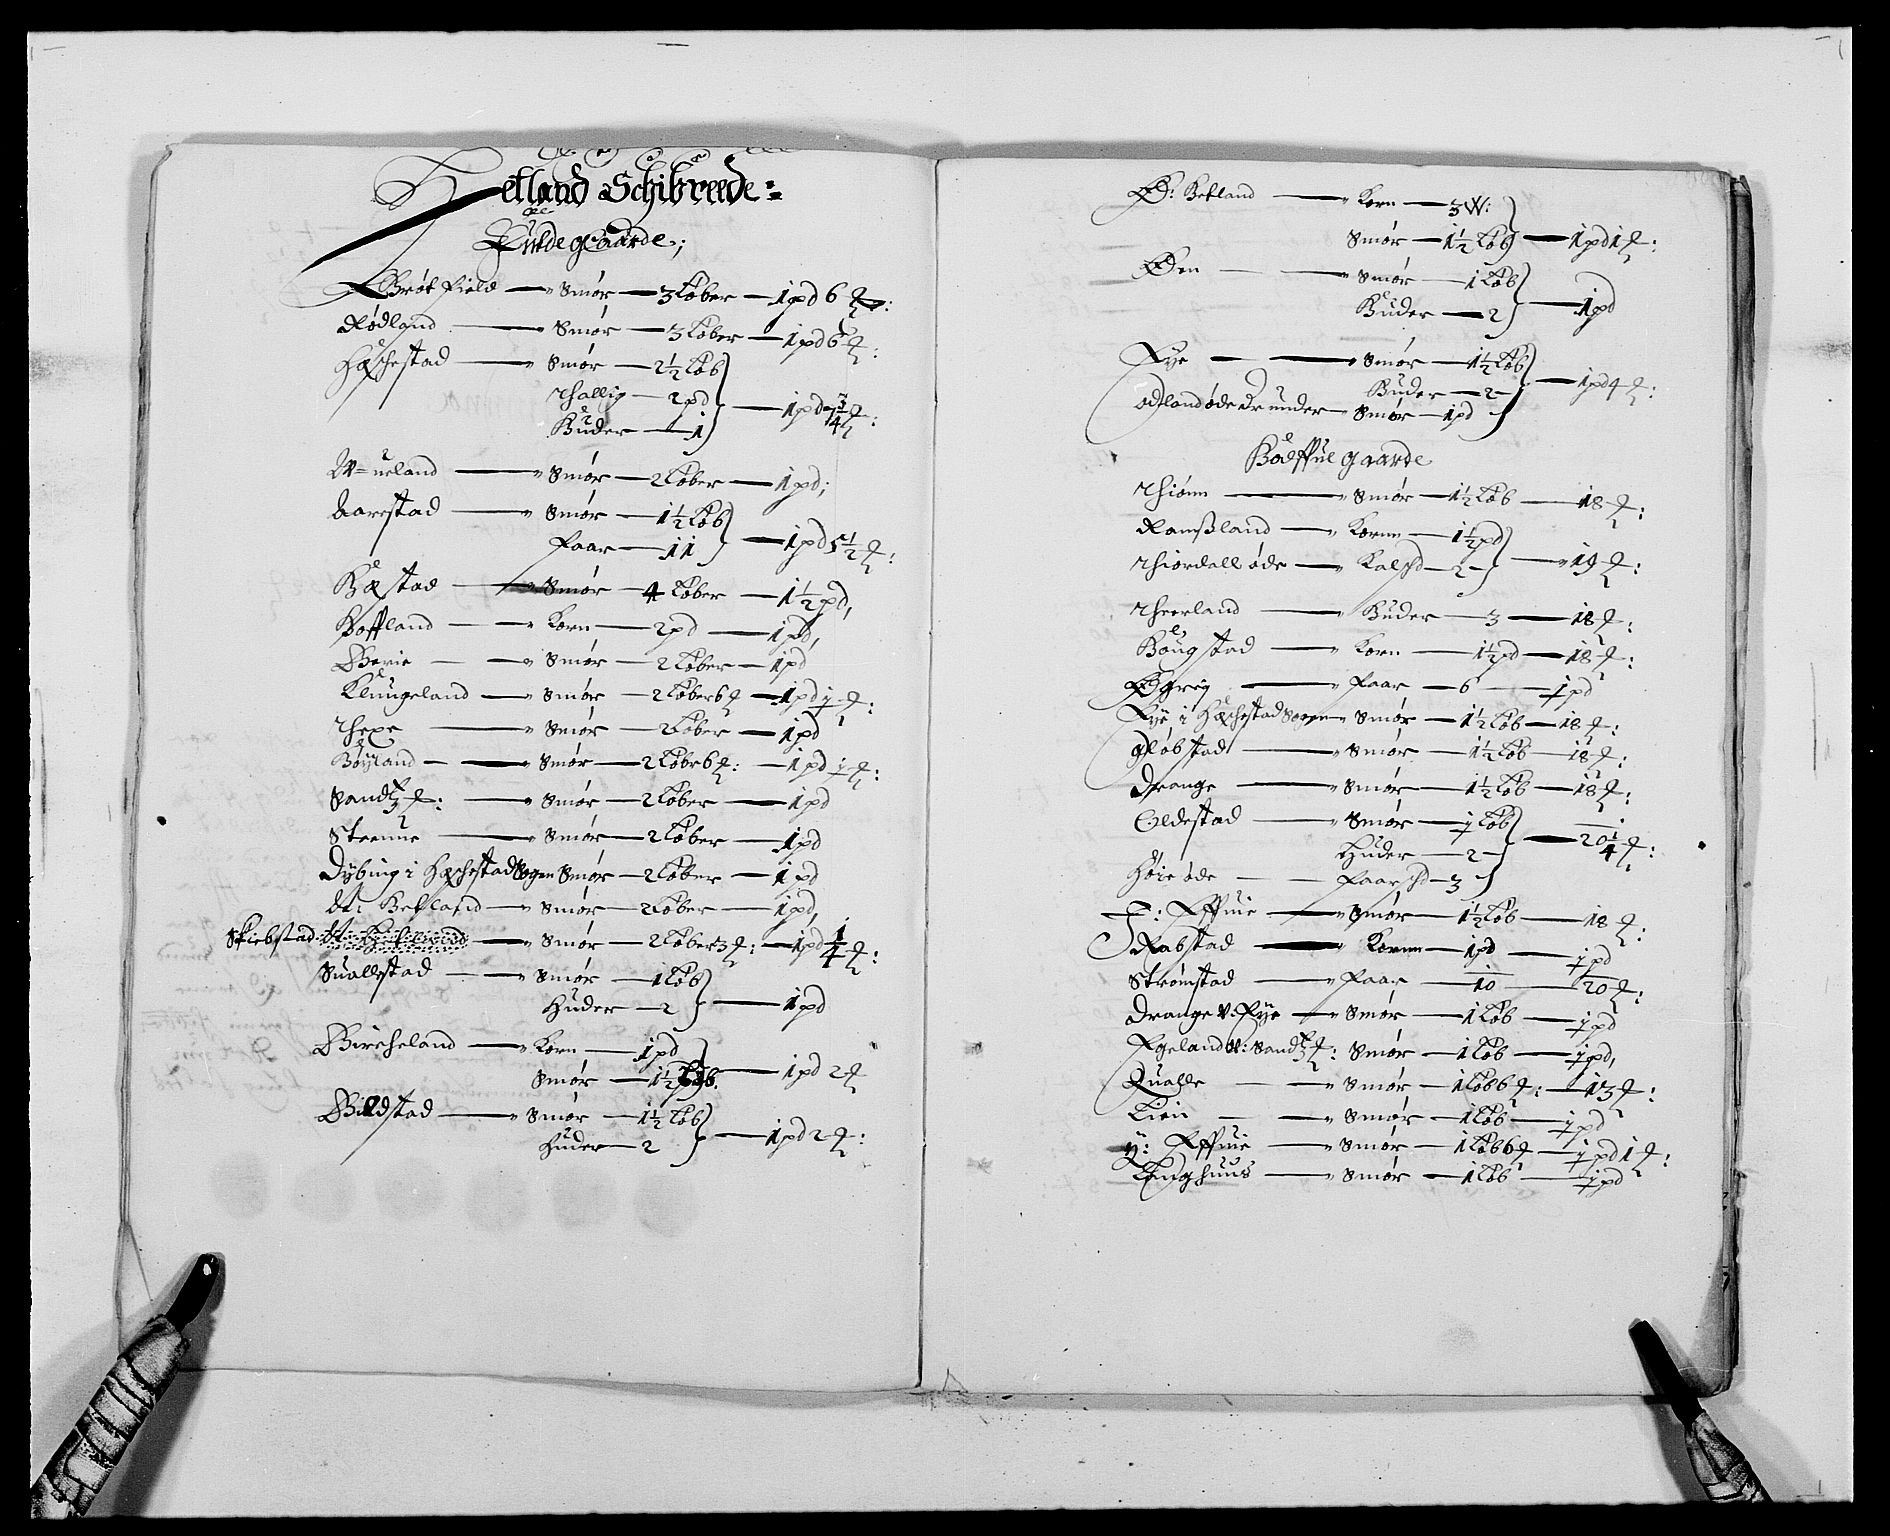 Hetland Schibreede:
Fulde gaarde;
Brøtfield — Smør — 3 Løber — 1 pd 6 ℔:
Rødland — Smør — 3 Løber — 1 pd 6 ℔:
Hæchestad — Smør — 2½ Løb
Thallig — 2 pd — 1 pd 7¾ ℔:
Huder — 1
W=ueland — Smør — 2 Løber — 1 pd;
Aarestad — Smør — 1½ Løb
Faar — 11 — 1 pd 5½ ℔:
Bøstad — Smør — 4 Løber — 1½ pd,
Hoffland — Korn — 2 pd — 1 pd,
Berie — Smør — 2 Løber — 1 pd
Klungeland — Smør — 2 Løber 6 ℔ — 1 pd ½ ℔:
Thexe — Smør — 2 Løber — 1 pd
Høyland — Smør — 2 Løb 6 ℔: — 1 pd ½ ℔:
Sand — Smør — 2 Løber — 1 pd
Steenne — Smør — 2 Løber — 1 pd
Dybing i Hæchestad Sogen Smør — 2 Løber — 1 pd
dt: Hetland — Smør — 2 Løber — 1 pd,
Skiebstad — Smør — 2 Løber 3 ℔: — 1 pd ¼ ℔:
Suallestad — Smør — 1 Løb
Huder — 2 — 1 pd
Bircheland — Korn — 1 pd
Smør — 1½ Løb. — 1 pd 2 ℔
Bilstad — Smør — 1½ Løb
Huder — 2 — 1 pd 2 ℔:
Ø: Hetland — Korn — 3 W:
Smør — 1½ Løb — 1 pd 1 ℔:
Øen — Smør — 1 Løb
Huder — 2 — 1 pd
Eye — Smør — 1½ Løb
Huder — 2 — 1 pd 4 ℔:
Odland øde der under — Smør — 1 pd
Halffue gaarde
Thiønn — Smør — 1½ Løb — 18 ℔:
Ramsland — Kornn — 1½ pd
Thiørdall øde — Kalschd — 2 — 19 ℔:
Theerland — Huder — 3 — 18 ℔:
Haugstad — Korn — 1½ pd — 18 ℔:
Øgreig — Faar — 6 — ½ pd
Eye i Hæchestad Sogen — Smør — 1½ Løb — 18 ℔:
gløbstad — Smør — 1½ Løb — 18 ℔:
Drange — Smør — 1½ Løb — 18 ℔:
Oldestad — Smør — ½ Løb
Huder — 2 — 20¼ ℔:
Høie øde — Faarschd — 3
I: Effnie — Smør — 1½ Løb — 18 ℔:
Rabstad — Kornn — 1 pd — ½ pd
Strømstad — Faar — 10 — 20 ℔:
Drange v: Eye — Smør — 1 Løb — ½ pd
Egeland v: Sand: Smør — 1 Løb — ½ pd,
Qualle — Smør — 1 Løb 6 ℔: — 13 ℔:
Lien — Smør — 1 Løb — ½ pd
Y: Effnie — Smør — 1 Løb 6 ℔ — ½ pd 1 ℔:
Langhuus — Smør — 1 Løb — ½ pd